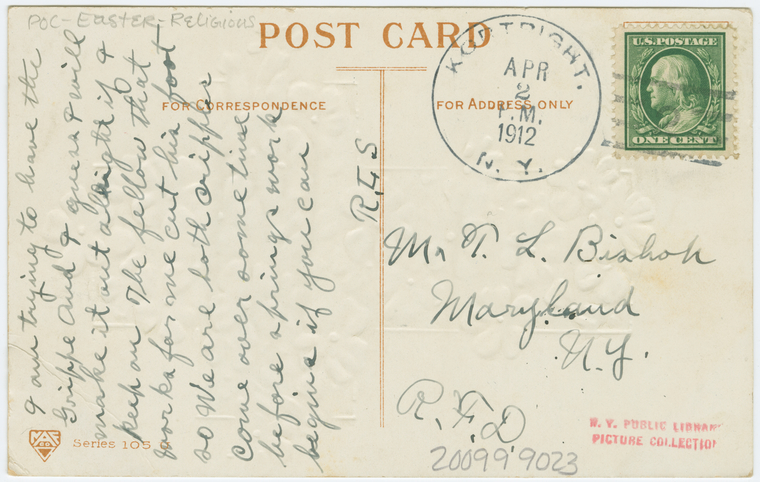 POC-EASTER-RELIGIOUS
POST CARD
FOR CORRESPONDENCE
FOR ADDRESS ONLY
KORTRIGHT.
APR
2
P.M.
1912
N.Y.
U.S. POSTAGE
ONE CENT
I am trying to have the
Grippe and I guess I will
make it out allright if I
keep on The fellow that
works for me cut his foot
so we are both cripples
come over some time
before springs work
begins if you can
R E S
Mr T. L. Bishop
Maryland
N.Y.
R.F.D.
Series 105
200999023
N. Y. PUBLIC LIBRARY
PICTURE COLLECTION